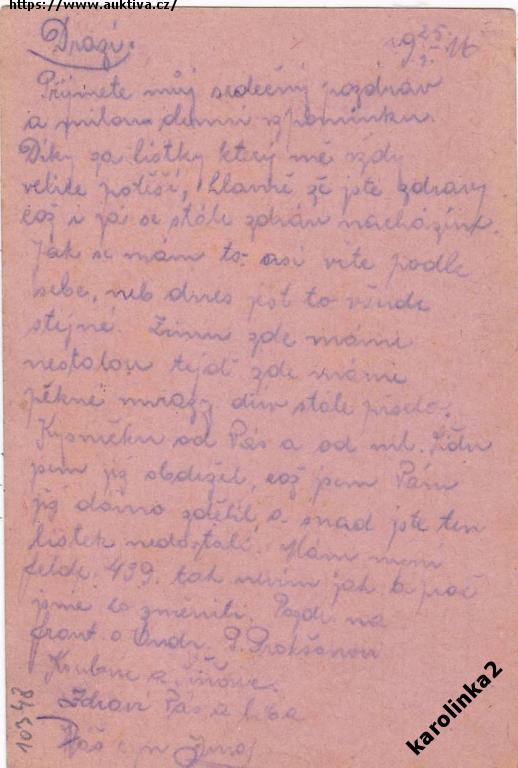 https://www.auktiva.cz/
Drazí. 19 25/2. 16
Přijmete můj srdečný pozdrav
a milou denní vzpomínku.
Díky za lístky který mě vždy
velice potěší, hlavně že jste zdravy
což i já se stále zdráv nacházím.
Jak se mám to asi víte podle
sebe, neb dnes jest to všude
stejné. Zimu zde máme
nestalou tejď zde máme
pěkné mrazy
Kysničku od Vás a od mil.
jsem již obdržel, což jsem Vám
již dávno zdělil, a snad jste ten
lístek nedostali. Mám
feldp. 439. tak nevím jak a proč
jsme to změnili. Pozdr. na
frant. a Ondr.
Koubovi a
Zdraví Vás a líbá
Váš syn
10348
karolinka2